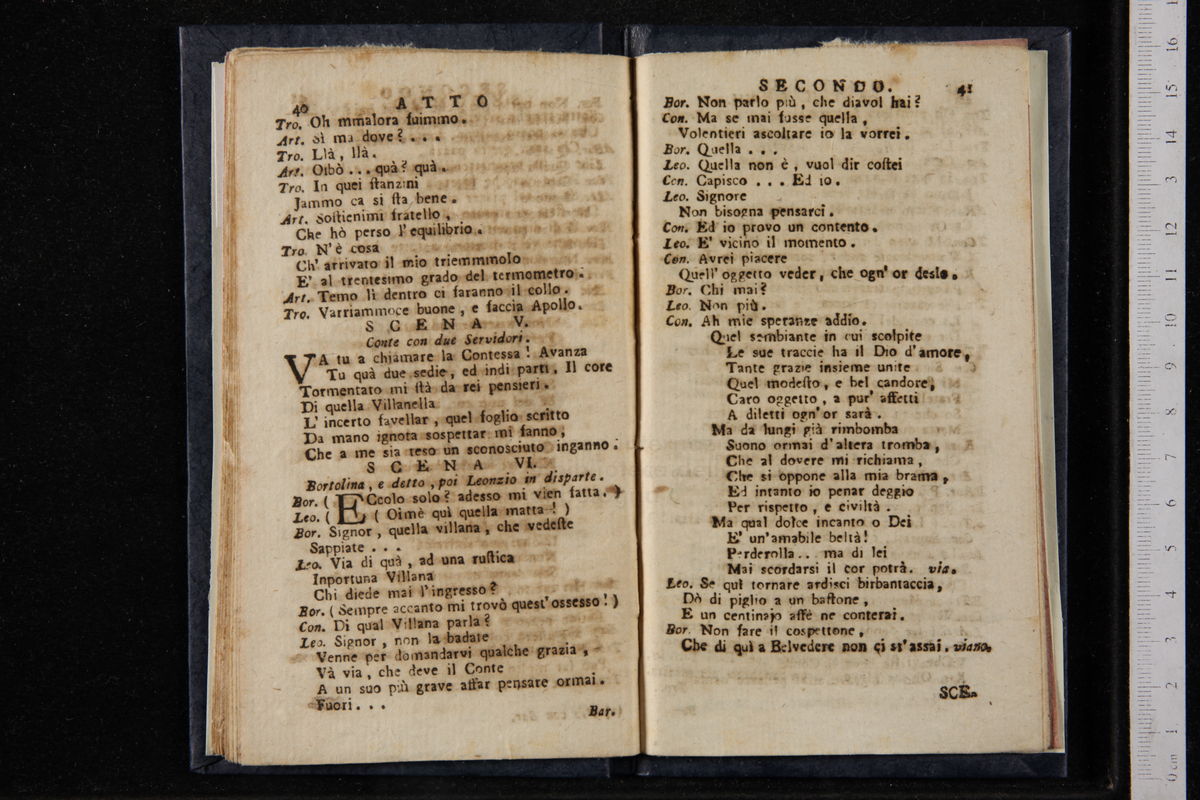 40 ATTO
Tro. Oh mmalora fuimmo.
Art. Sì ma dove? . . .
Tro. Llà, llà.
Art. Oibò . . . quà? quà.
Tro. In quei ſtanzini
Jammo ca si ſta bene.
Art. Soſtienimi fratello,
Che hò perso l'equilibrio.
Tro. N'è cosa
Ch' arrivato il mio triemmmolo
E' al trentesimo grado del termometro.
Art. Temo lì dentro ci faranno il collo.
Tro. Varriammoce buone, e faccia Apollo.
SCENA V.
Conte con due Servidori.
VA tu a chiamare la Contessa! Avanza
Tu quà due sedie, ed indi parti. Il core
Tormentato mi ſtà da rei pensieri.
Di quella Villanella
L' incerto favellar, quel foglio scritto
Da mano ignota sospettar mi fanno,
Che a me sia teso un sconosciuto inganno.
SCENA VI.
Bortolina, e detto, poi Leonzio in disparte.
Bor. ( ECcolo solo? adesso mi vien fatta. )
Leo. ( ( Oimè quì quella matta! )
Bor. Signor, quella villana, che vedeſte
Sappiate . . .
Leo. Via di quà, ad una ruſtica
Inportuna Villana
Chi diede mai l'ingresso?
Bor. ( Sempre accanto mi trovò quest'ossesso! )
Con. Di qual Villana parla?
Leo. Signor, non la badate
Venne per domandarvi qualche grazia,
Và via, che deve il Conte
A un suo più grave affar pensare ormai.
Fuori . . .
Bar.
SECONDO. 41
Bor. Non parlo più, che diavol hai?
Con. Ma se mai fusse quella,
Volentieri ascoltare io la vorrei.
Bor. Quella . . .
Leo. Quella non è, vuol dir coſtei
Con. Capisco . . . Ed io.
Leo. Signore
Non bisogna pensarci.
Con. Ed io provo un contento.
Leo. E' vicino il momento.
Con. Avrei piacere
Quell' oggetto veder, che ogn' or desìo.
Bor. Chi mai?
Leo. Non più.
Con. Ah mie speranze addio.
Quel sembiante in cui scolpite
Le sue traccie ha il Dio d'amore,
Tante grazie insieme unite
Quel modeſto, e bel candore,
Caro oggetto, a pur' affetti
A diletti ogn' or sarà.
Ma da lungi già rimbomba
Suono ormai d'altera tromba,
Che al dovere mi richiama,
Che si oppone alla mia brama,
Ed intanto io penar deggio
Per rispetto, e civiltà.
Ma qual dolce incanto o Dei
E' un'amabile beltà!
Perderolla . . ma di lei
Mai scordarsi il cor potrà. via.
Leo. Se quì tornare ardisci birbantaccia,
Dò di piglio a un baſtone,
E un centinajo affè ne conterai.
Bor. Non fare il cospettone,
Che di quì a Belvedere non ci st'assai. viano.
SCE-
0 cm 1 2 3 4 5 6 7 8 9 10 11 12 13 14 15 16